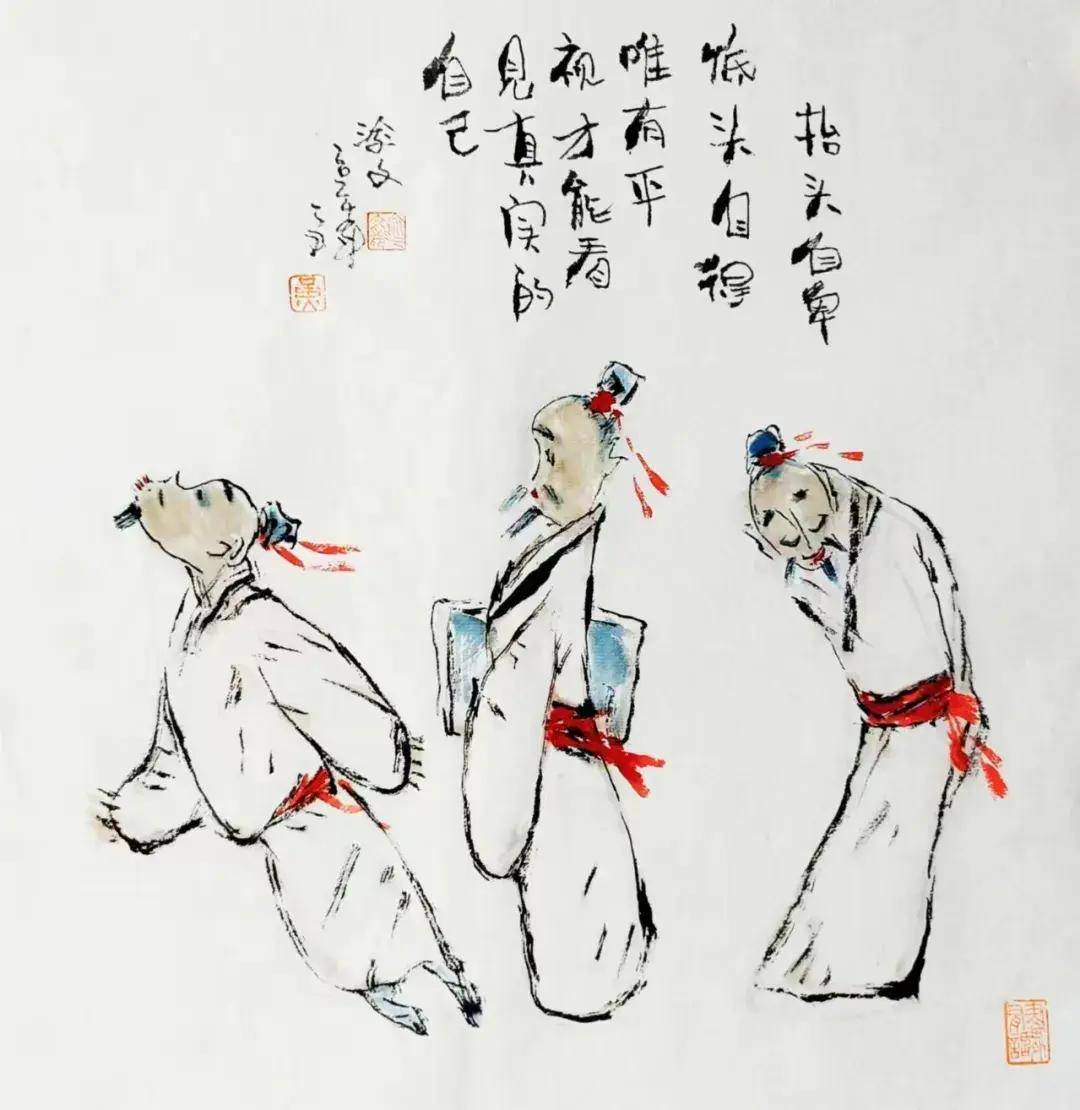 抬头自卑
低头自得
唯有平
视才能看
见真实的
自己
涂文
吴